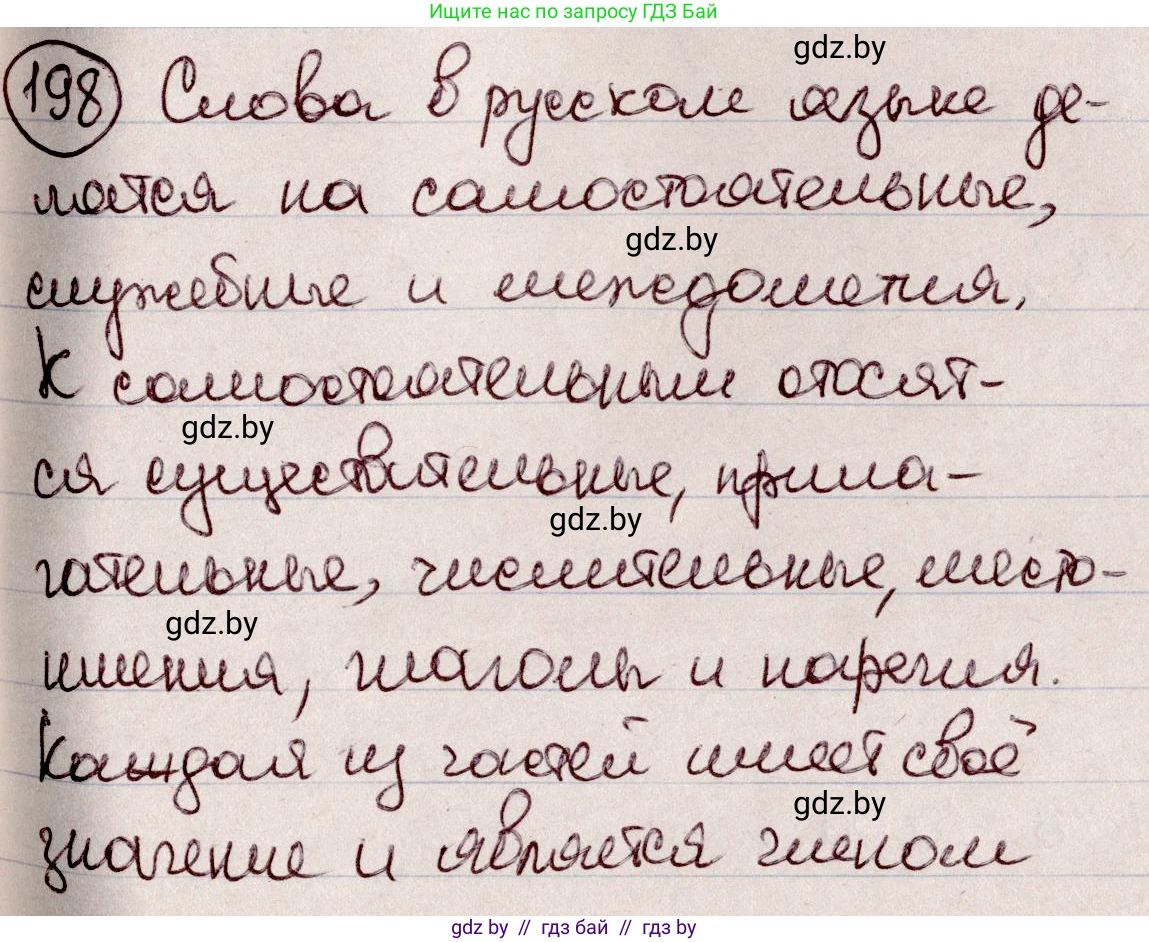 Ищите нас по запросу ГДЗ Бай
gdz.by
198 Слова в русском языке де-
лятся на самостоятельные,
gdz.by
служебные и междометия.
К самостоятельным относят-
gdz.by
ся существительные, прила-
gdz.by
гательные, числительные, место-
gdz.by
имения, глаголы и наречия.
Каждая из частей имеет своё
gdz.by
значение и является членом
gdz by // гдз бай // гдз by